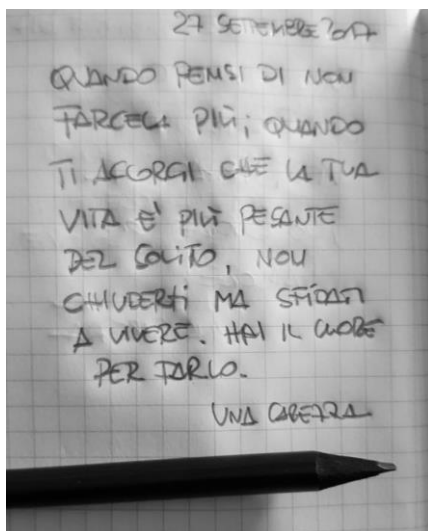 27 SETTEMBRE 2017
QUANDO PENSI DI NON
FARCELA PIÙ; QUANDO
TI ACCORGI CHE LA TUA
VITA E' PIÙ PESANTE
DEL SOLITO, NON
CHIUDERTI MA SFIDATI
A VIVERE. HAI IL CUORE
PER FARLO.
UNA CAREZZA